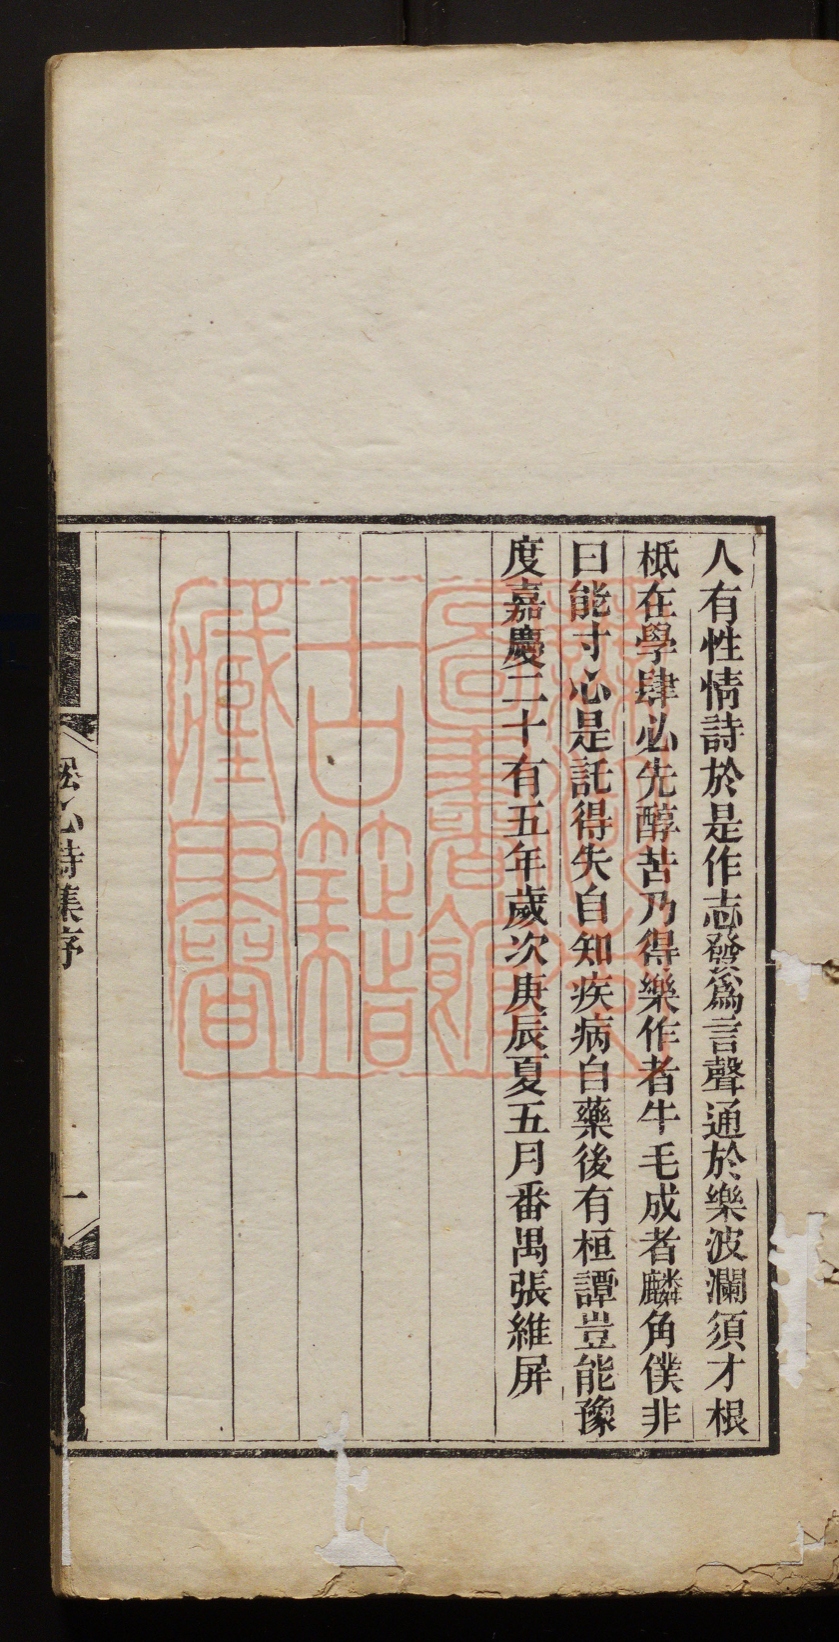 人有性情詩於是作志發為言聲通於樂波瀾須才根
柢在學肆必先醇苦乃得樂作者牛毛成者麟角僕非
曰能寸心是託得失自知疾病自藥後有桓譚豈能豫
度嘉慶二十有五年歲次庚辰夏五月番禺張維屏
松心詩集序
一
圖書館
古籍
藏書